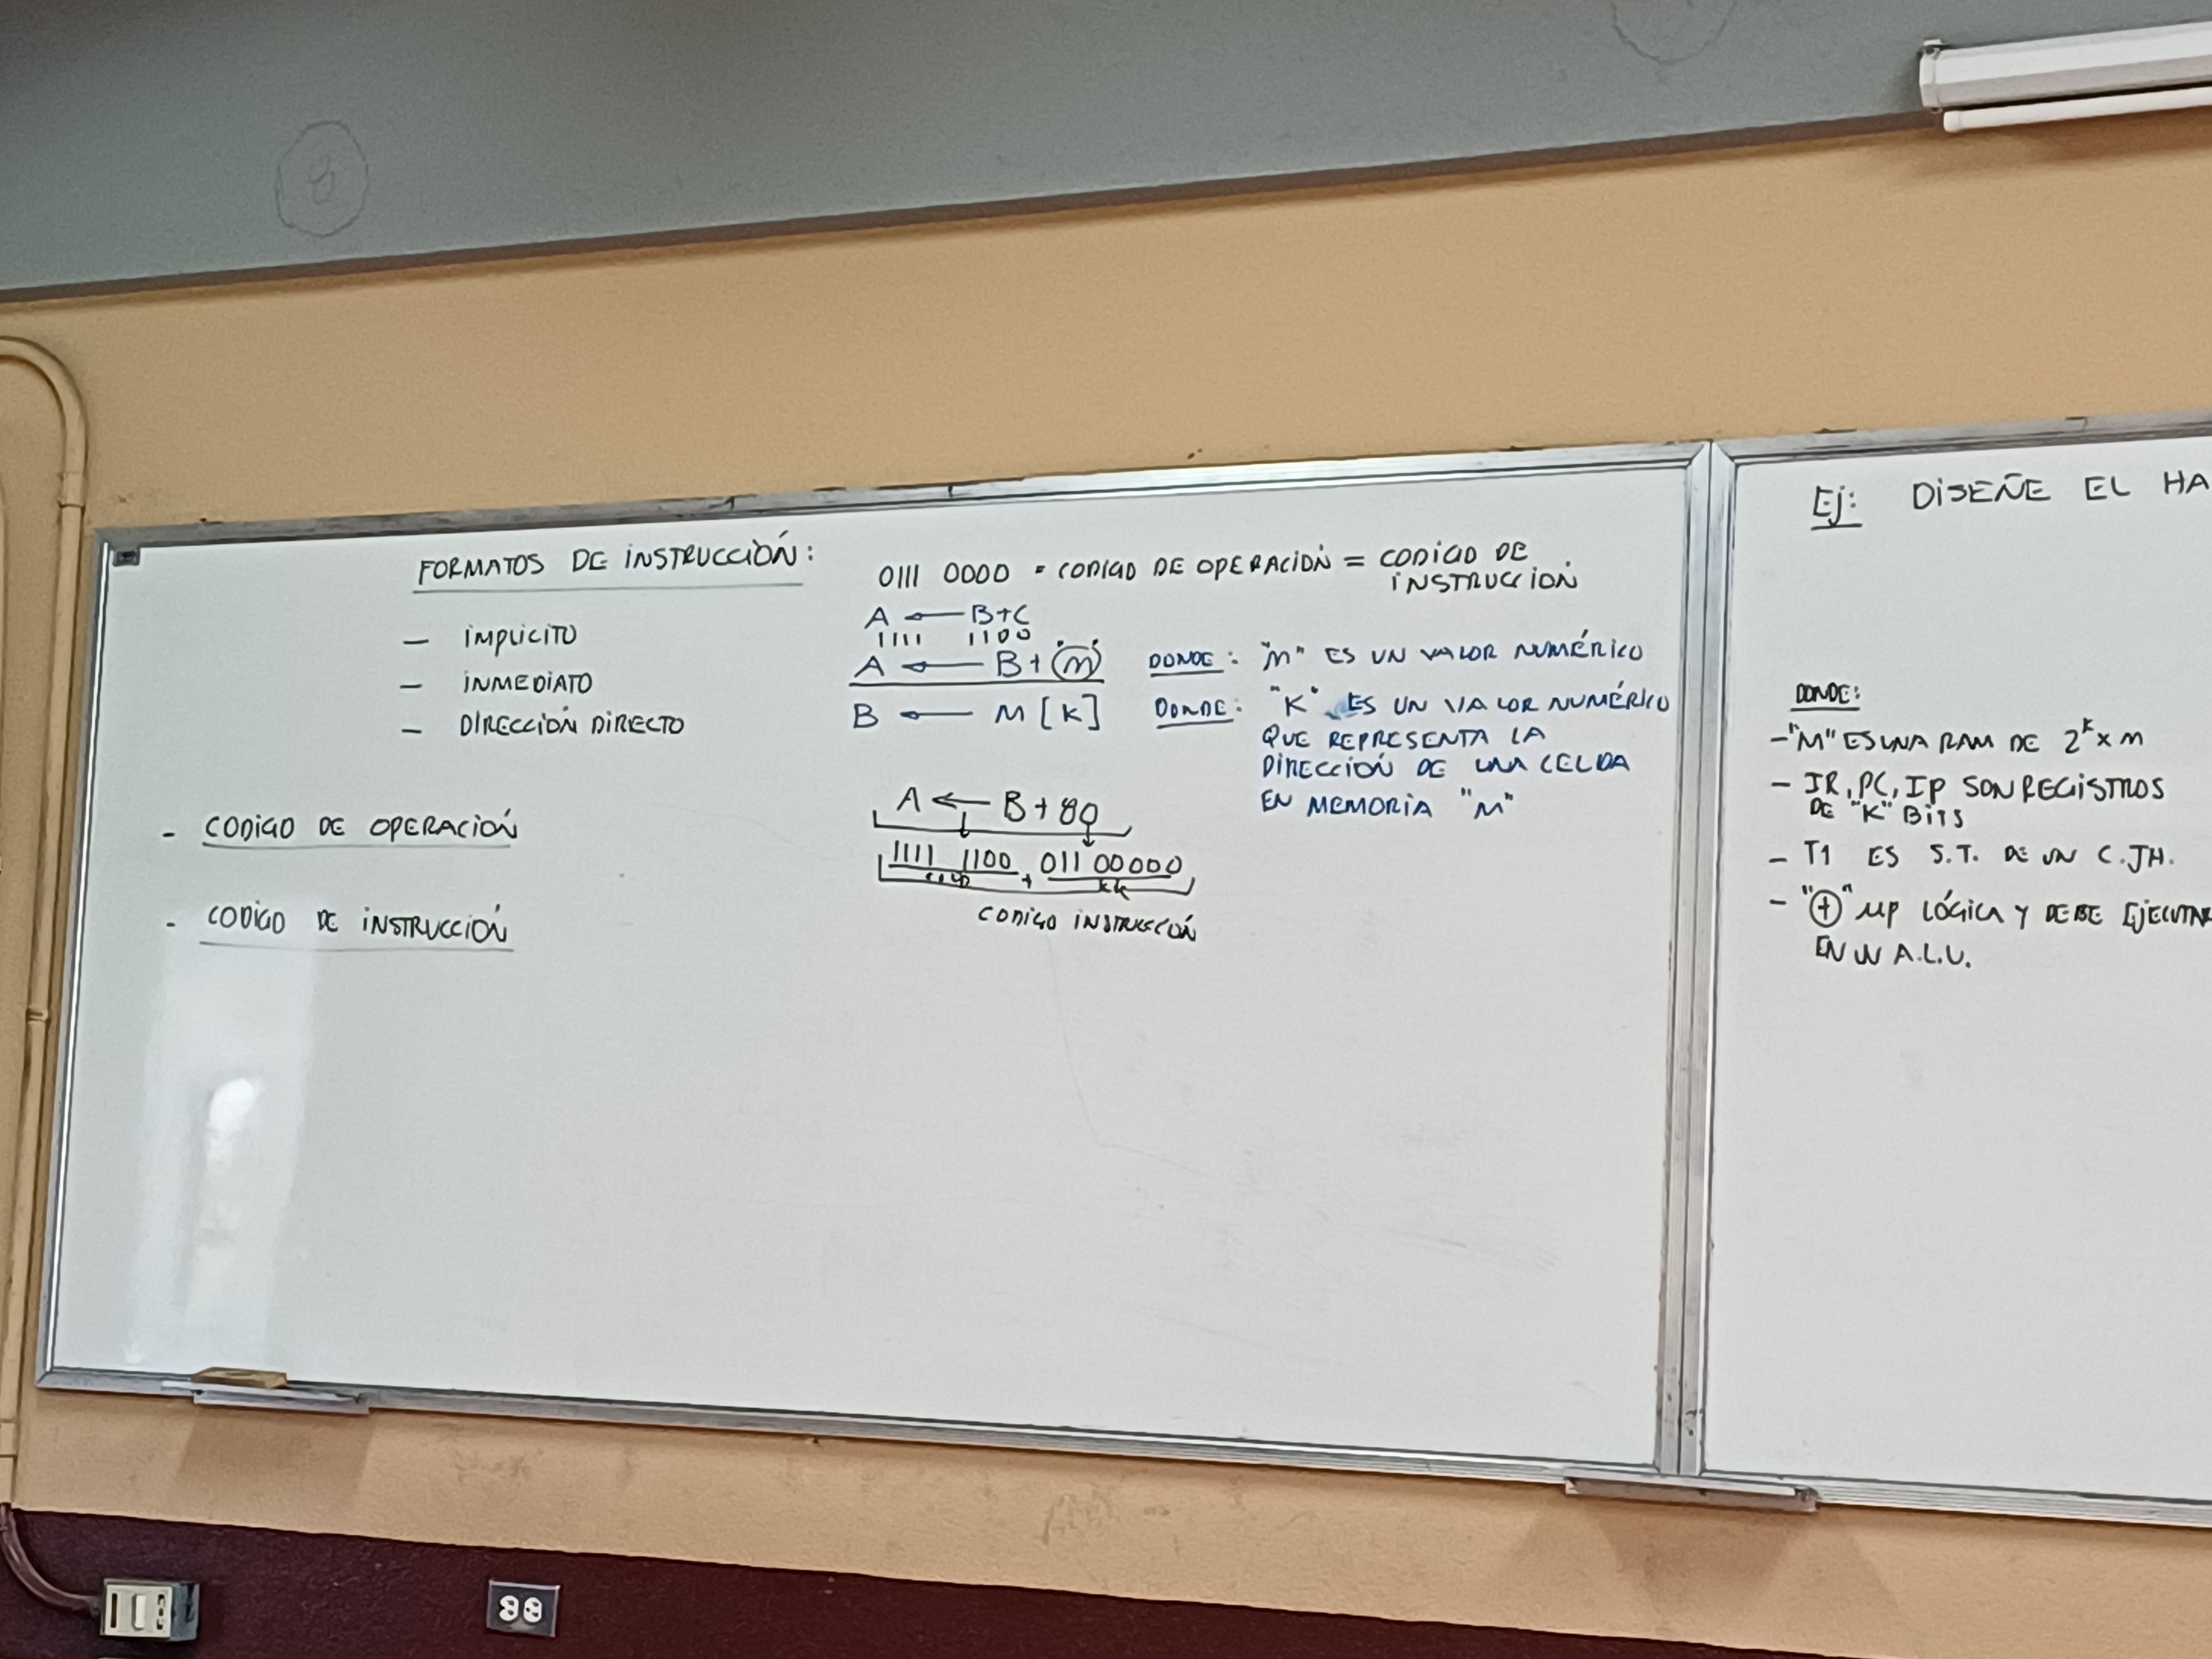 8
FORMATOS DE INSTRUCCIÓN:
- IMPLICITO
- INMEDIATO
- DIRECCIÓN DIRECTO
- CODIGO DE OPERACIÓN
- CODIGO DE INSTRUCCIÓN
0111 0000 = CODIGO DE OPERACIÓN = CODIGO DE
INSTRUCCION
A ← B+C
1111 1100
A ← B + m DONDE: "M" ES UN VALOR NUMÉRICO
B ← M [K] DONDE: "K" ES UN VALOR NUMÉRICO
QUE REPRESENTA LA
DIRECCIÓN DE UNA CELDA
EN MEMORIA "M"
A ← B + 80
1111 1100 + 011 00000
CODIGO INSTRUCCIÓN
Ej: DISEÑE EL HA
DONDE:
- "M" ES UNA RAM DE 2^K x m
- IR, PC, IP SON REGISTROS
DE "K" BITS
- T1 ES S.T. DE UN C.JH.
- "⊕" OP LÓGICA Y DEBE EJECUTAR
EN UN A.L.U.